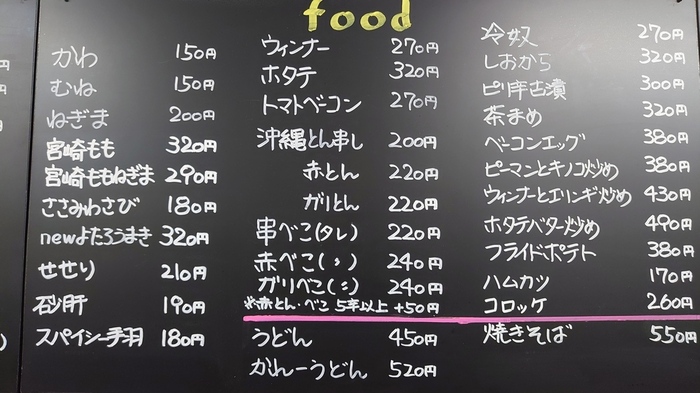 food
かわ 150円
むね 150円
ねぎま 200円
宮崎もも 320円
宮崎ももねぎま 290円
ささみわさび 180円
newよたろうまき 320円
せせり 210円
砂肝 190円
スパイシー手羽 180円
ウィンナー 270円
ホタテ 320円
トマトベーコン 270円
沖縄とん串し 200円
赤とん 220円
ガリとん 220円
串べこ(タレ) 220円
赤べこ(〃) 240円
ガリべこ(〃) 240円
※赤とん・べこ 5辛以上 +50円
うどん 450円
かんーうどん 520円
冷奴 270円
しおから 320円
ピリ辛古漬 300円
茶まめ 320円
ベーコンエッグ 380円
ピーマンとキノコ炒め 380円
ウィンナーとエリンギ炒め 430円
ホタテバター炒め 490円
フライドポテト 380円
ハムカツ 170円
コロッケ 260円
焼きそば 550円